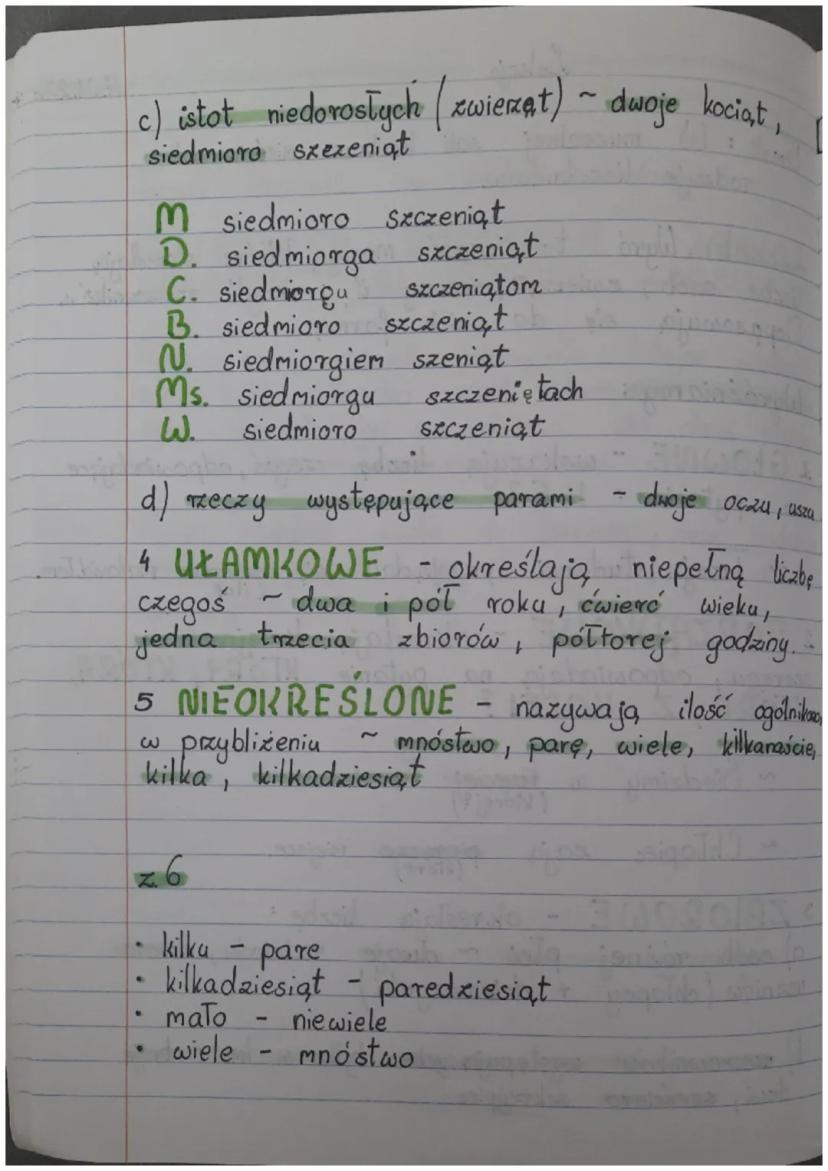 c) istot niedorosłych (zwierząt) ~ dwoje kociąt,
siedmioro szczeniąt
M siedmioro szczeniąt
D. siedmiorga szczeniąt
C. siedmiorgu szczeniątom
B. siedmioro szczeniąt
N. siedmiorgiem szeniąt
Ms. siedmiorgu szczeniętach
W. siedmioro szczeniąt
d) rzeczy występujące parami - dwoje oczu, uszu
4 UŁAMKOWE - określają niepełną liczbę
czegoś ~ dwa i pół roku, ćwierć wieku,
jedna trzecia zbiorów, półtorej godziny.
5 NIEOKREŚLONE - nazywają ilość ogólnikowo,
w przybliżeniu ~ mnóstwo, parę, wiele, kilkanaście,
kilka, kilkadziesiąt
z.6
• kilku - pare
• kilkadziesiąt - paredziesiąt
• mało - niewiele
• wiele - mnóstwo